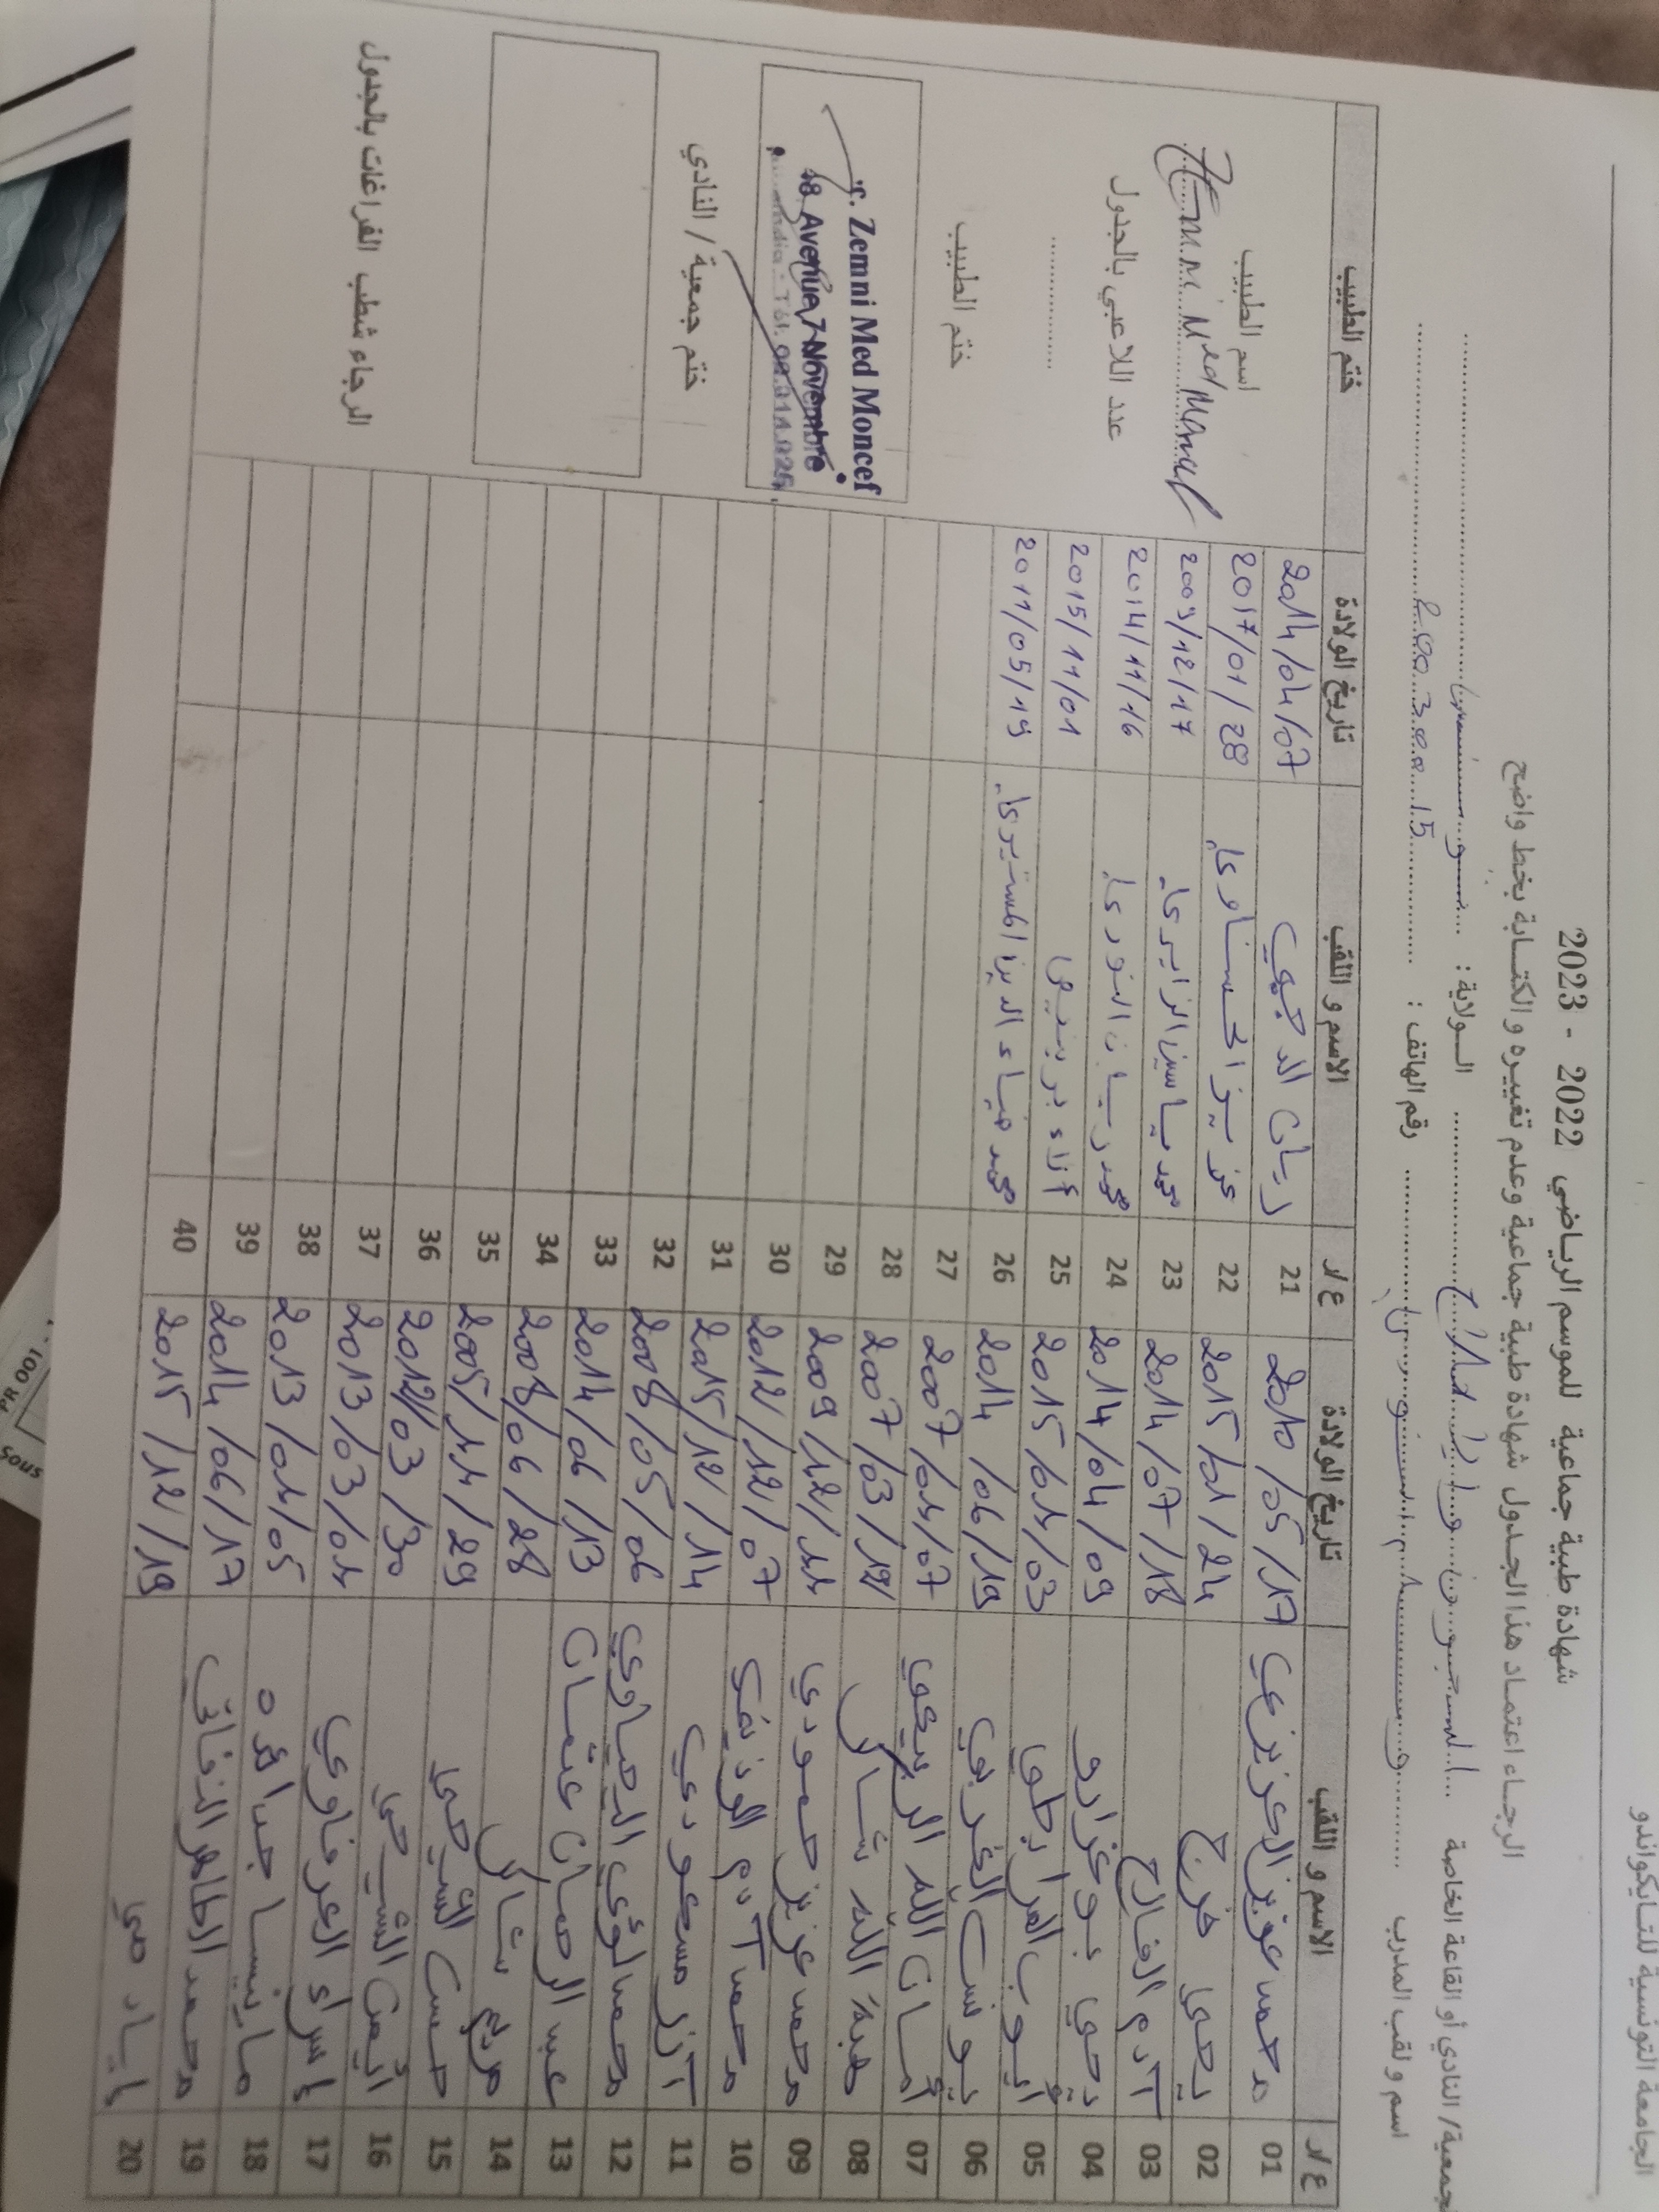 الجامعة التونسية للتايكواندو
شهادة طبية جماعية للموسم الرياضي 2022 - 2023
الرجاء اعتماد هذا الجدول شهادة طبية جماعية وعدم تغييره والكتابة بخط واضح
الجمعية/ النادي أو القاعة الخاصة الولاية : سوسة
اسم و لقب المدرب رقم الهاتف :
ع/ر الاسم و اللقب تاريخ الولادة ع/ر الاسم و اللقب تاريخ الولادة ختم الطبيب
01 محمد عزيز العزيزي 2010/05/17 21 ريان الدجبي 2014/04/07
02 يحي فرج 2015/01/24 22 عزيز الحسناوي 2017/01/28 اسم الطبيب
03 آدم الفالح 2014/07/18 23 محمد ياسين الزايري 2009/12/17
04 يحي بوغزارو 2014/04/09 24 محمد ريان النوري 2014/11/16 عدد اللاعبي بالجدول
05 أيوب المرابطي 2015/01/03 25 آلاء 2015/11/01
06 يونس الغربي 2014/06/19 26 محمد ضياء الدين المستيري 2011/05/19 ختم الطبيب
07 أمان الله الربيعي 2007/01/07 27
08 هبة الله شابي 2007/03/12 28 Zemni Med Moncef
09 محمد عزيز حمودي 2009/12/11 29 48 Avenue 7 Novembre
10 محمد آدم 2012/12/07 30
11 آزر مسعودي 2015/12/14 31 ختم جمعية / النادي
12 محمد لؤي العياوي 2008/05/06 32
13 عبد الرحمان عثمان 2014/06/13 33
14 مريم شابي 2008/06/28 34
15 حسن الشيحي 2005/11/29 35
16 أيمن الشيحي 2012/03/30 36
17 إسراء العرفاوي 2013/03/01 37 الرجاء شطب الفراغات بالجدول
18 مارينسا 2013/01/05 38
19 محمد الطاهر 2014/06/17 39
20 إياد مي 2015/12/19 40